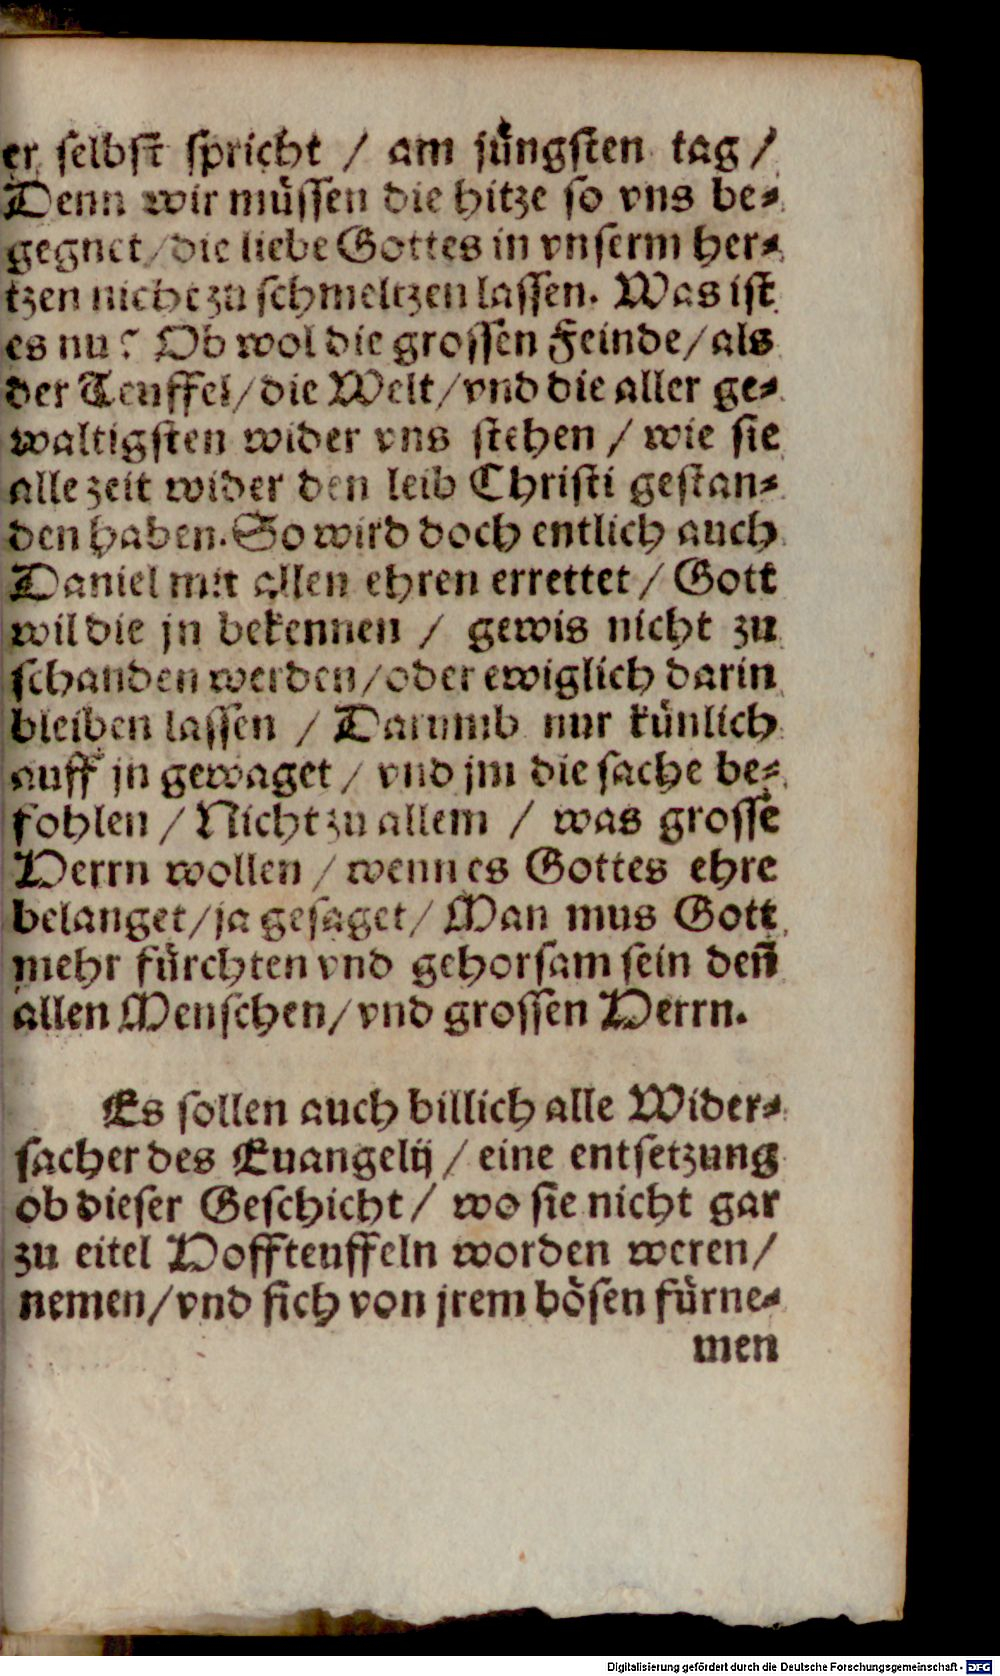 er selbst spricht / am jüngsten tag /
Denn wir müssen die hitze so vns be-
gegnet / die liebe Gottes in vnserm her-
tzen nicht zu schmeltzen lassen. Was ist
es nu? Ob wol die grossen Feinde / als
der Teuffel / die Welt / vnd die aller ge-
waltigsten wider vns stehen / wie sie
alle zeit wider den leib Christi gestan-
den haben. So wird doch entlich auch
Daniel mit allen ehren errettet / Gott
wil die jn bekennen / gewis nicht zu
schanden werden / oder ewiglich darin
bleiben lassen / Darumb nur künlich
auff jn gewaget / vnd jm die sache be-
fohlen / Nicht zu allem / was grosse
Herrn wollen / wenn es Gottes ehre
belanget / ja gesaget / Man mus Gott
mehr fürchten vnd gehorsam sein deñ
allen Menschen / vnd grossen Herrn.
Es sollen auch billich alle Wider-
sacher des Euangelij / eine entsetzung
ob dieser Geschicht / wo sie nicht gar
zu eitel Hoffteuffeln worden weren /
nemen / vnd sich von jrem bösen fürne-
men
Digitalisierung gefördert durch die Deutsche Forschungsgemeinschaft - DFG